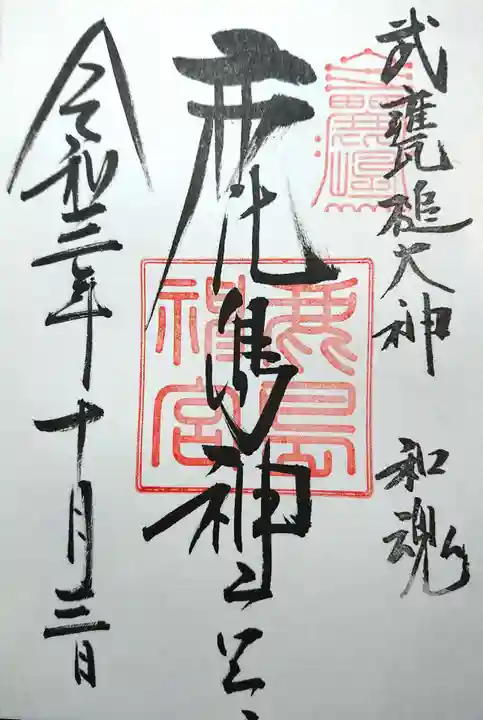 武甕槌大神 和魂
鹿島神宮
鹿島
神宮
令和三年十月三日